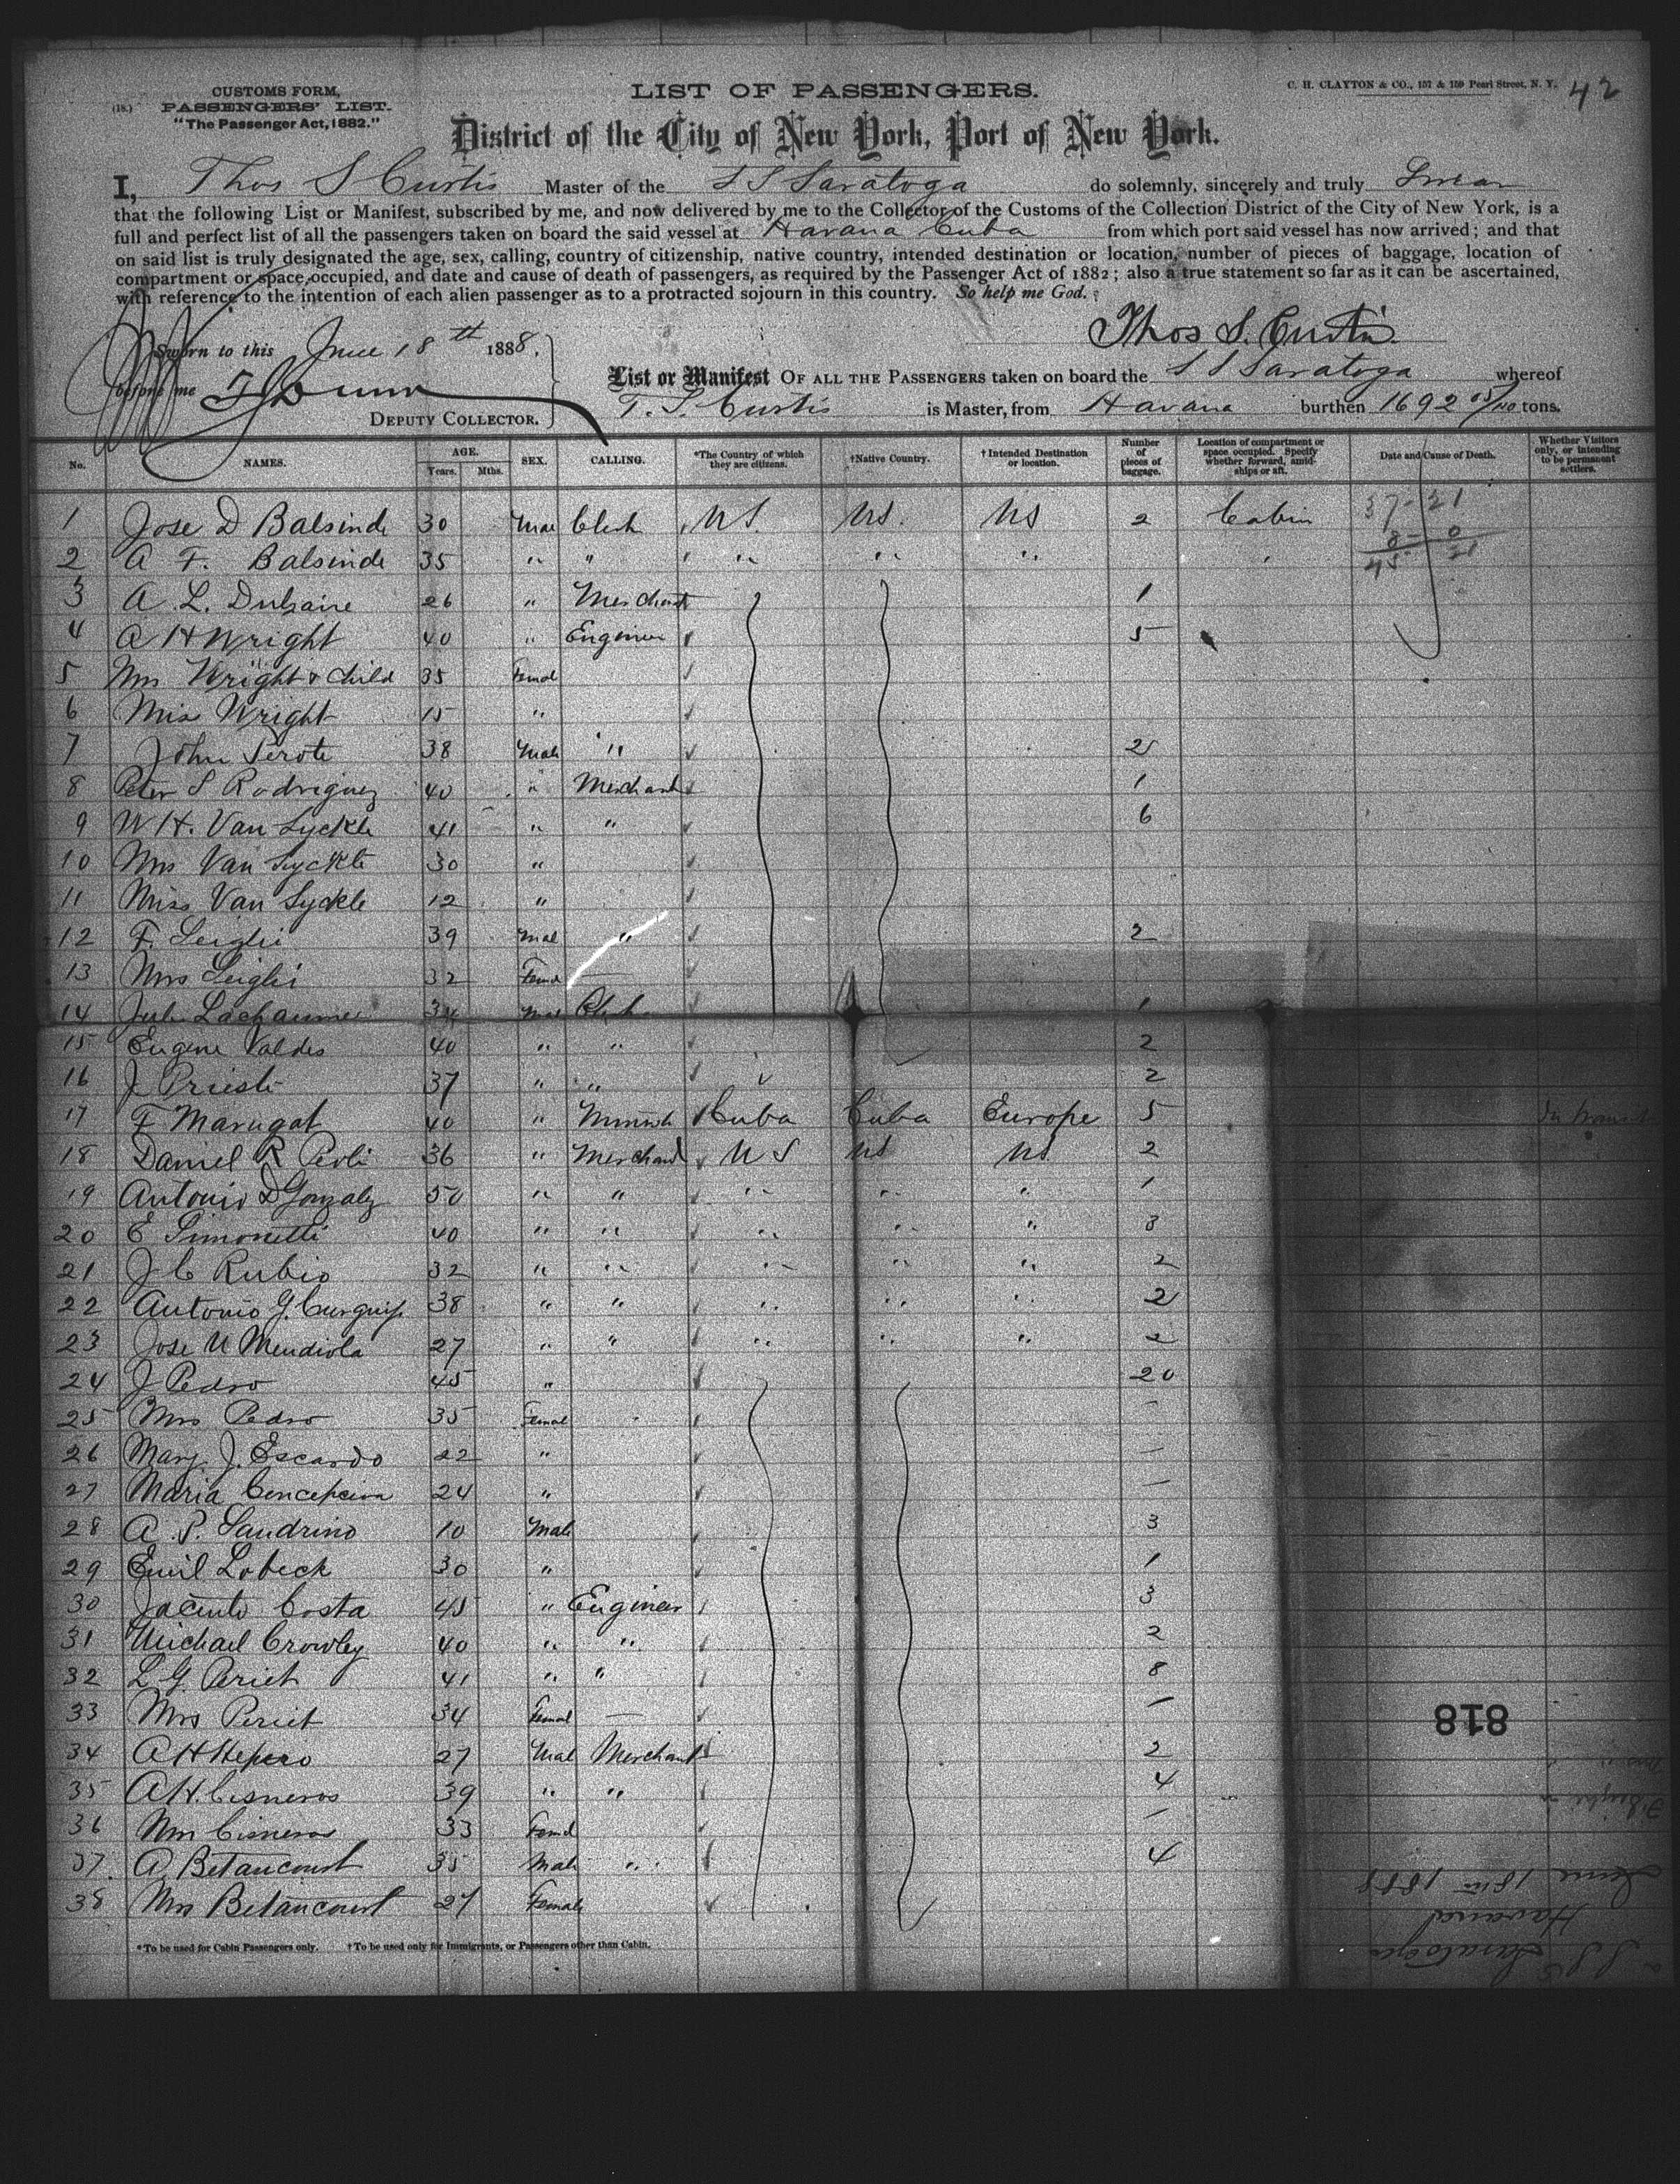 CUSTOMS FORM,
(18.) PASSENGERS' LIST.
"The Passenger Act, 1882."
LIST OF PASSENGERS.
C. H. CLAYTON & CO., 157 & 159 Pearl Street, N. Y.
42
District of the City of New York, Port of New York.
I, Thos S Curtis Master of the S S Saratoga do solemnly, sincerely and truly Swear
that the following List or Manifest, subscribed by me, and now delivered by me to the Collector of the Customs of the Collection District of the City of New York, is a
full and perfect list of all the passengers taken on board the said vessel at Havana Cuba from which port said vessel has now arrived; and that
on said list is truly designated the age, sex, calling, country of citizenship, native country, intended destination or location, number of pieces of baggage, location of
compartment or space occupied, and date and cause of death of passengers, as required by the Passenger Act of 1882; also a true statement so far as it can be ascertained,
with reference to the intention of each alien passenger as to a protracted sojourn in this country. So help me God.
Thos S. Curtis
Sworn to this June 18th 1888.
before me
DEPUTY COLLECTOR.
List or Manifest OF ALL THE PASSENGERS taken on board the S S Saratoga whereof
T. S. Curtis is Master, from Havana burthen 1692 tons.
No. NAMES. AGE. Years. Mths. SEX. CALLING. *The Country of which they are citizens. †Native Country. †Intended Destination or location. Number of pieces of baggage. Location of compartment or space occupied. Specify whether forward, amidships or aft. Date and Cause of Death. Whether Visitors only, or intending to be permanent settlers.
1 Jose D Balsinde 30 Mal Clerk US US US 2 Cabin 37-21
2 A F. Balsinde 35 " " " " "
3 A. L. 26 " Merchant 1
4 A H Wright 40 " Engineer 5
5 Mrs Wright & Child 35 Femal
6 Miss Wright 15 "
7 John 38 Male " 2
8 Peter S Rodriguez 40 " Merchant 1
9 W H. Van Syckle 41 " " 6
10 Mrs Van Syckle 30 "
11 Miss Van Syckle 12 "
12 F. Leiglie 39 Mal " 2
13 Mrs Leiglie 32 Femal
14 Lachaume 34 Mal Clerk 1
15 Eugene Valdes 40 " " 2
16 J 37 " " 2
17 F Marugat 40 " Cuba Cuba Europe 5 In transit
18 Daniel R 36 " Merchant US US US 2
19 Antonio D Gonzalez 50 " " " " " 1
20 E Simonetti 40 " " " " " 3
21 J C Rubio 32 " " " " " 2
22 Antonio G. 38 " " " " " 2
23 Jose M Mendiola 27 " " " " " 2
24 J Pedro 45 " 20
25 Mrs Pedro 35 Femal —
26 Mary J. Escardo 22 " —
27 Maria Concepcion 24 " —
28 A. P. Sandrino 10 Male 3
29 Emil Lobeck 30 " 1
30 Jacinto Costa 45 " Engineer 3
31 Michael Crowley 40 " " 2
32 L. G. Periet 41 " " 8
33 Mrs Periet 34 Femal — —
34 A H 27 Mal Merchant 2
35 A H. Cisneros 39 " " 4
36 Mrs Cisneros 33 Femal —
37. A. Betancourt 35 Male " 4
38 Mrs Betancourt 27 Female
*To be used for Cabin Passengers only. †To be used only for Immigrants, or Passengers other than Cabin.
818
June 18th 1888
Havana
S S Saratoga